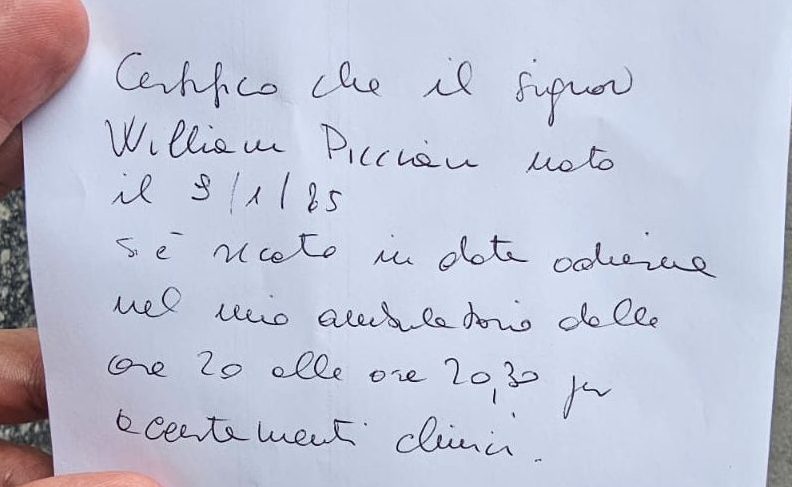 Certifico che il signor
William Piccian nato
il 9/1/85
si è recato in data odierna
nel mio ambulatorio dalle
ore 20 alle ore 20,30 per
accertamenti clinici.